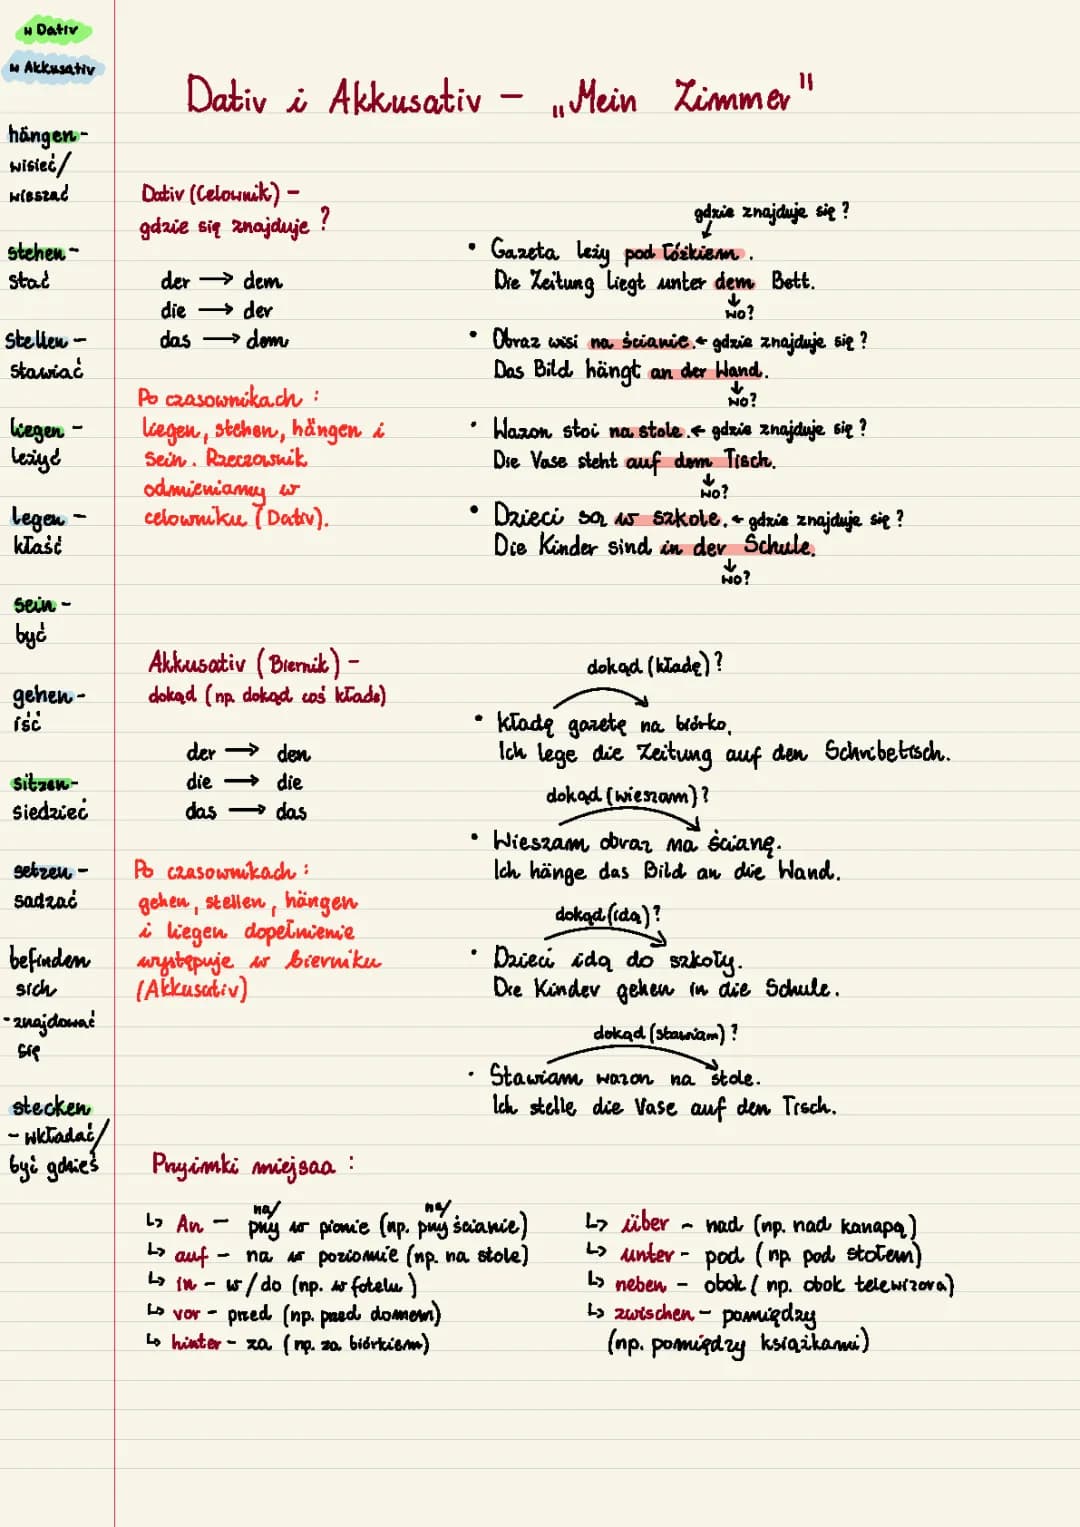 w Dativ
w Akkusativ
Dativ i Akkusativ – „Mein Zimmer"
hängen -
wisieć/
wieszać
stehen -
stać
stellen -
stawiać
liegen -
leżyć
legen -
kłaść
sein -
być
gehen -
iść
sitzen -
siedzieć
setzen -
sadzać
befinden
sich
- znajdować
się
stecken
- wkładać/
być gdzieś
Dativ (Celownik) -
gdzie się znajduje ?
der → dem
die → der
das → dem
Po czasownikach :
liegen, stehen, hängen i
sein. Rzeczownik
odmieniamy w
celowniku (Dativ).
gdzie znajduje się ?
• Gazeta leży pod łóżkiem.
Die Zeitung liegt unter dem Bett.
wo?
• Obraz wisi na ścianie. ← gdzie znajduje się ?
Das Bild hängt an der Wand.
wo?
• Wazon stoi na stole. ← gdzie znajduje się ?
Die Vase steht auf dem Tisch.
wo?
• Dzieci są w szkole. ← gdzie znajduje się ?
Die Kinder sind in der Schule.
wo?
Akkusativ (Biernik) -
dokąd (np. dokąd coś kładę)
der → den
die → die
das → das
Po czasownikach :
gehen, stellen, hängen
i liegen dopełnienie
występuje w bierniku
(Akkusativ)
dokąd (kładę)?
• Kładę gazetę na biórko.
Ich lege die Zeitung auf den Schribetisch.
dokąd (wieszam)?
• Wieszam obraz na ścianę.
Ich hänge das Bild an die Wand.
dokąd (idą)?
• Dzieci idą do szkoły.
Die Kinder gehen in die Schule.
dokąd (stawiam) ?
• Stawiam wazon na stole.
Ich stelle die Vase auf den Tisch.
Przyimki miejsca :
↳ An - na/ przy w pionie (np. na/ przy ścianie)
↳ auf - na w poziomie (np. na stole)
↳ in - w/do (np. w fotelu)
↳ vor - przed (np. przed domem)
↳ hinter - za (np. za biórkiem)
↳ über - nad (np. nad kanapą)
↳ unter - pod (np. pod stołem)
↳ neben - obok (np. obok telewizora)
↳ zwischen - pomiędzy
(np. pomiędzy książkami)